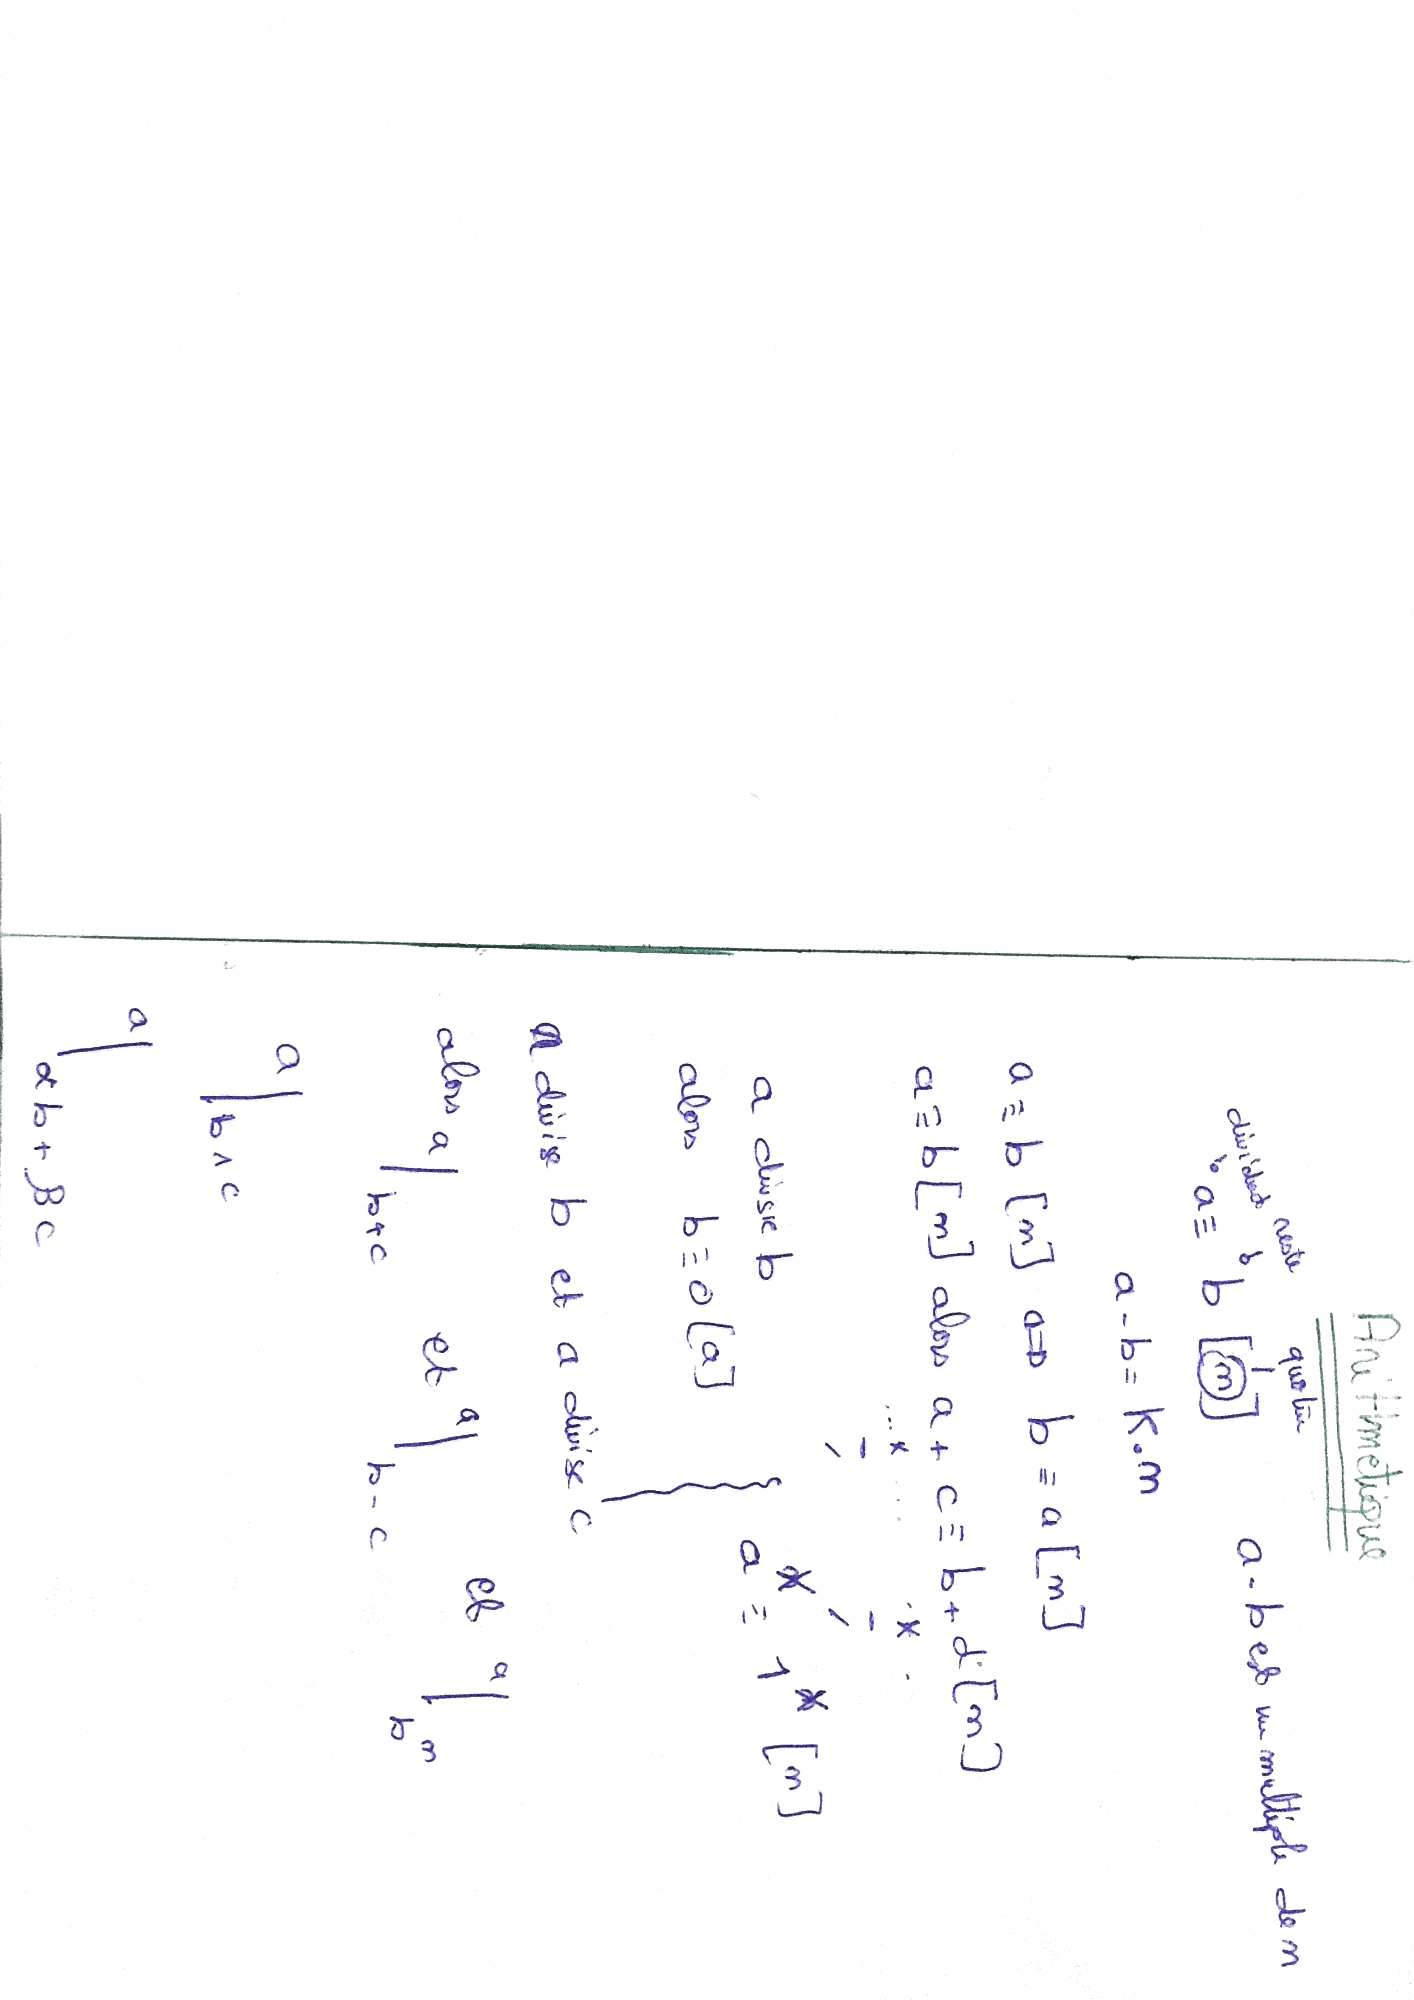 Arithmetique
dividende reste quotien
a ≡ b [n] a-b est un multiple de n
a-b = K.n
a ≡ b [n] ⇔ b ≡ a [n]
a ≡ b [n] alors a + c ≡ b + d [n]
... × .... × .
- -
/ /
a divsie b
a* ≡ 1* [n]
alors b ≡ 0 [a]
a divise b et a divise c
alors a | b+c et a | b-c et a | bn
a | b ∧ c
a | αb + βc